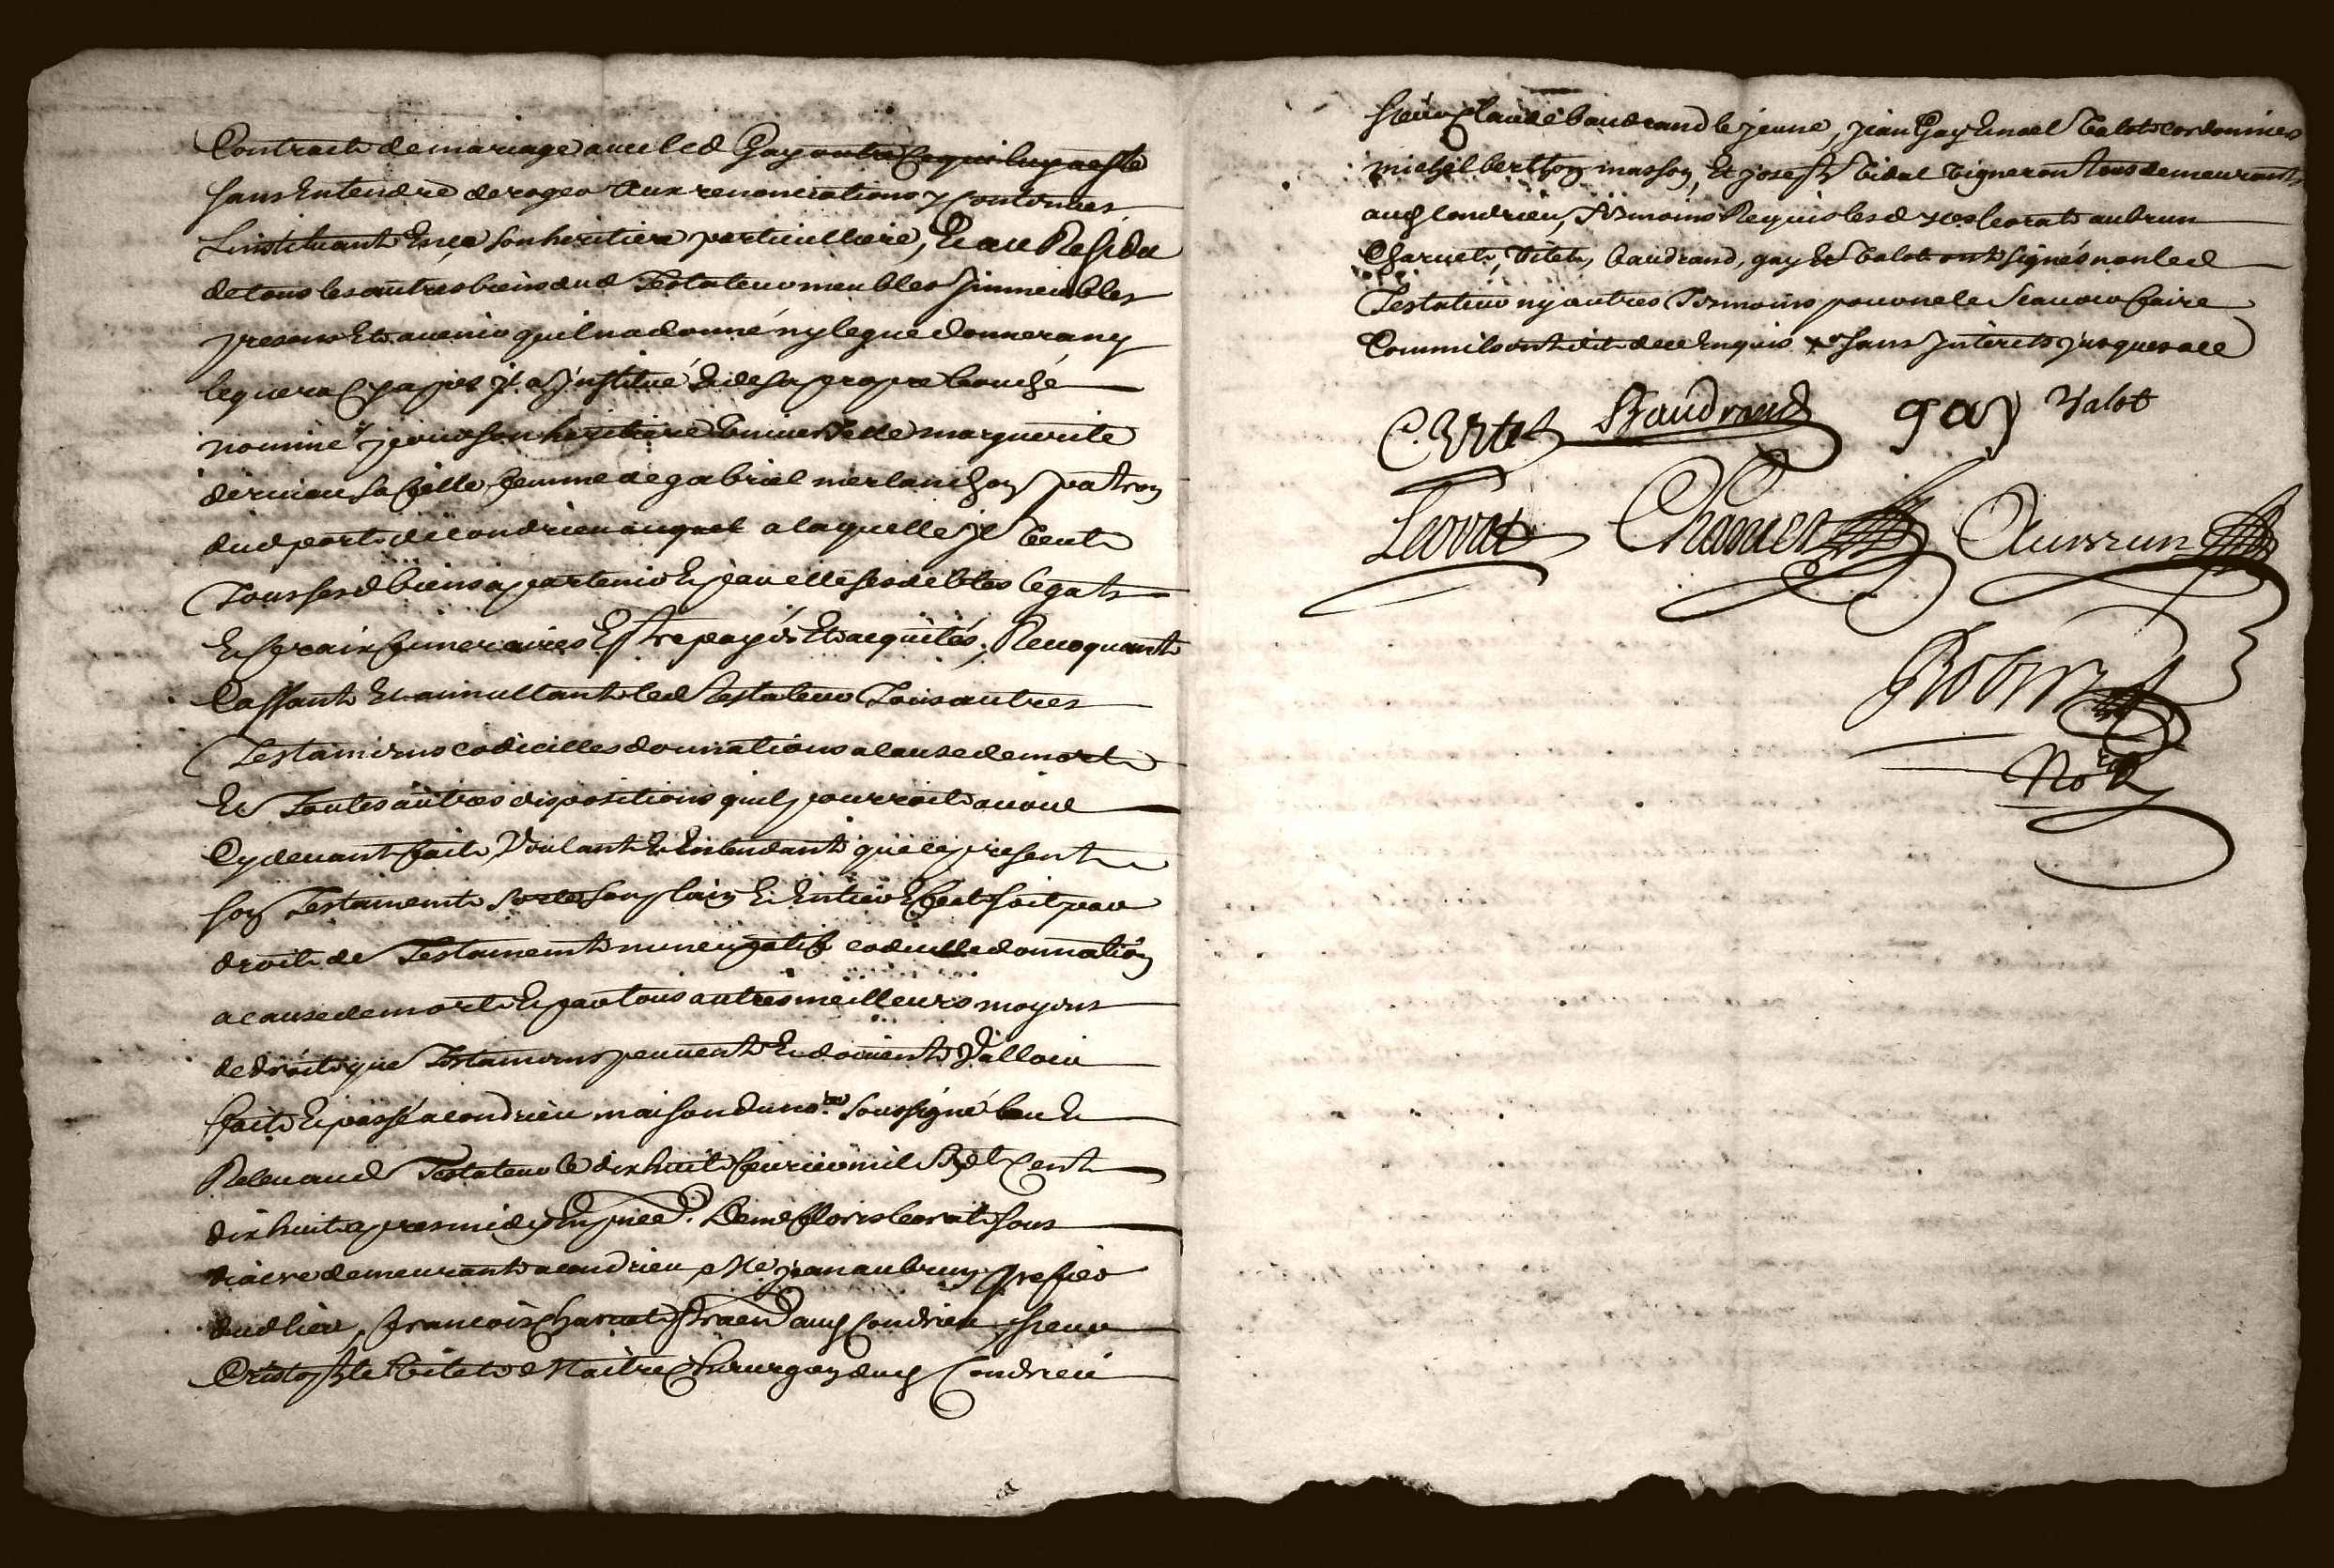 Contract de mariage avecled Gay outre ce qui luy a esté
sans Entendre deroger aux renonciations y contenues
Linstituant En ce son heritiere particulliere, Et au Residu
de tous les autres biens dud Testateur meubles Jmmeubles
presens Et avenir quil na donné ny legué donnera ny
leguera cy apres jl a Jnstitué Et de sa propre bouche
nommé pour son heritiere universelle marguerite
dervieu sa fille femme de gabriel merlanchon patron
dud port de condrieu auquel a laquelle jl veut
Tous sesd biens apartenir Et par elle ses debtes legats
Et fraix funeraires Estre payés Et acquités, Revoquant
Cassant Et annullant led Testateur Tous autres
Testamens codicilles donnations a cause de mort
Et Toutes autres dispositions quil pourroit avoir
Cy devant fait Voulant Et Entendant que ce present
son Testament sorte son plain Et Entier Effect soit par
droit de Testament nuncupatif codicille donnation
a cause de mort Et par tous autres meilleurs moyens
de droit que Testamens peuvent Et doivent Valloir
fait Et passé a condrieu maison du no.re soussigné leu Et
Releu aud Testateur le dix huit fevrier mil Sept Cent
dix huit apres midy En pnce de. Floris leorat sous
diacre demeurant a condrieu Me jean aubrun greffier
dud lieu, francois charvet praen aud Condrieu, sieur
Cristophle vitet Maitre Chirurgien aud Condrieu
sieur Claude baudrand le jeune, jean Gay Valot cordonnier
michel berthon masson, Et joseph vidal vigneron tous demeurants
aud condrieu, Tesmoins Requis lesd srs leorat aubrun
Charvet, Vitet, baudrand, gay Et Valot ont signés non led
Testateur ny autres Tesmoins pour ne le Scavoir faire
Comme ils ont dit de ce Enquis sans Jnterets jusques a ce
C. Vitet Baudrand gay Valot
Leorat Charvet Aubrun
Robin
No.re